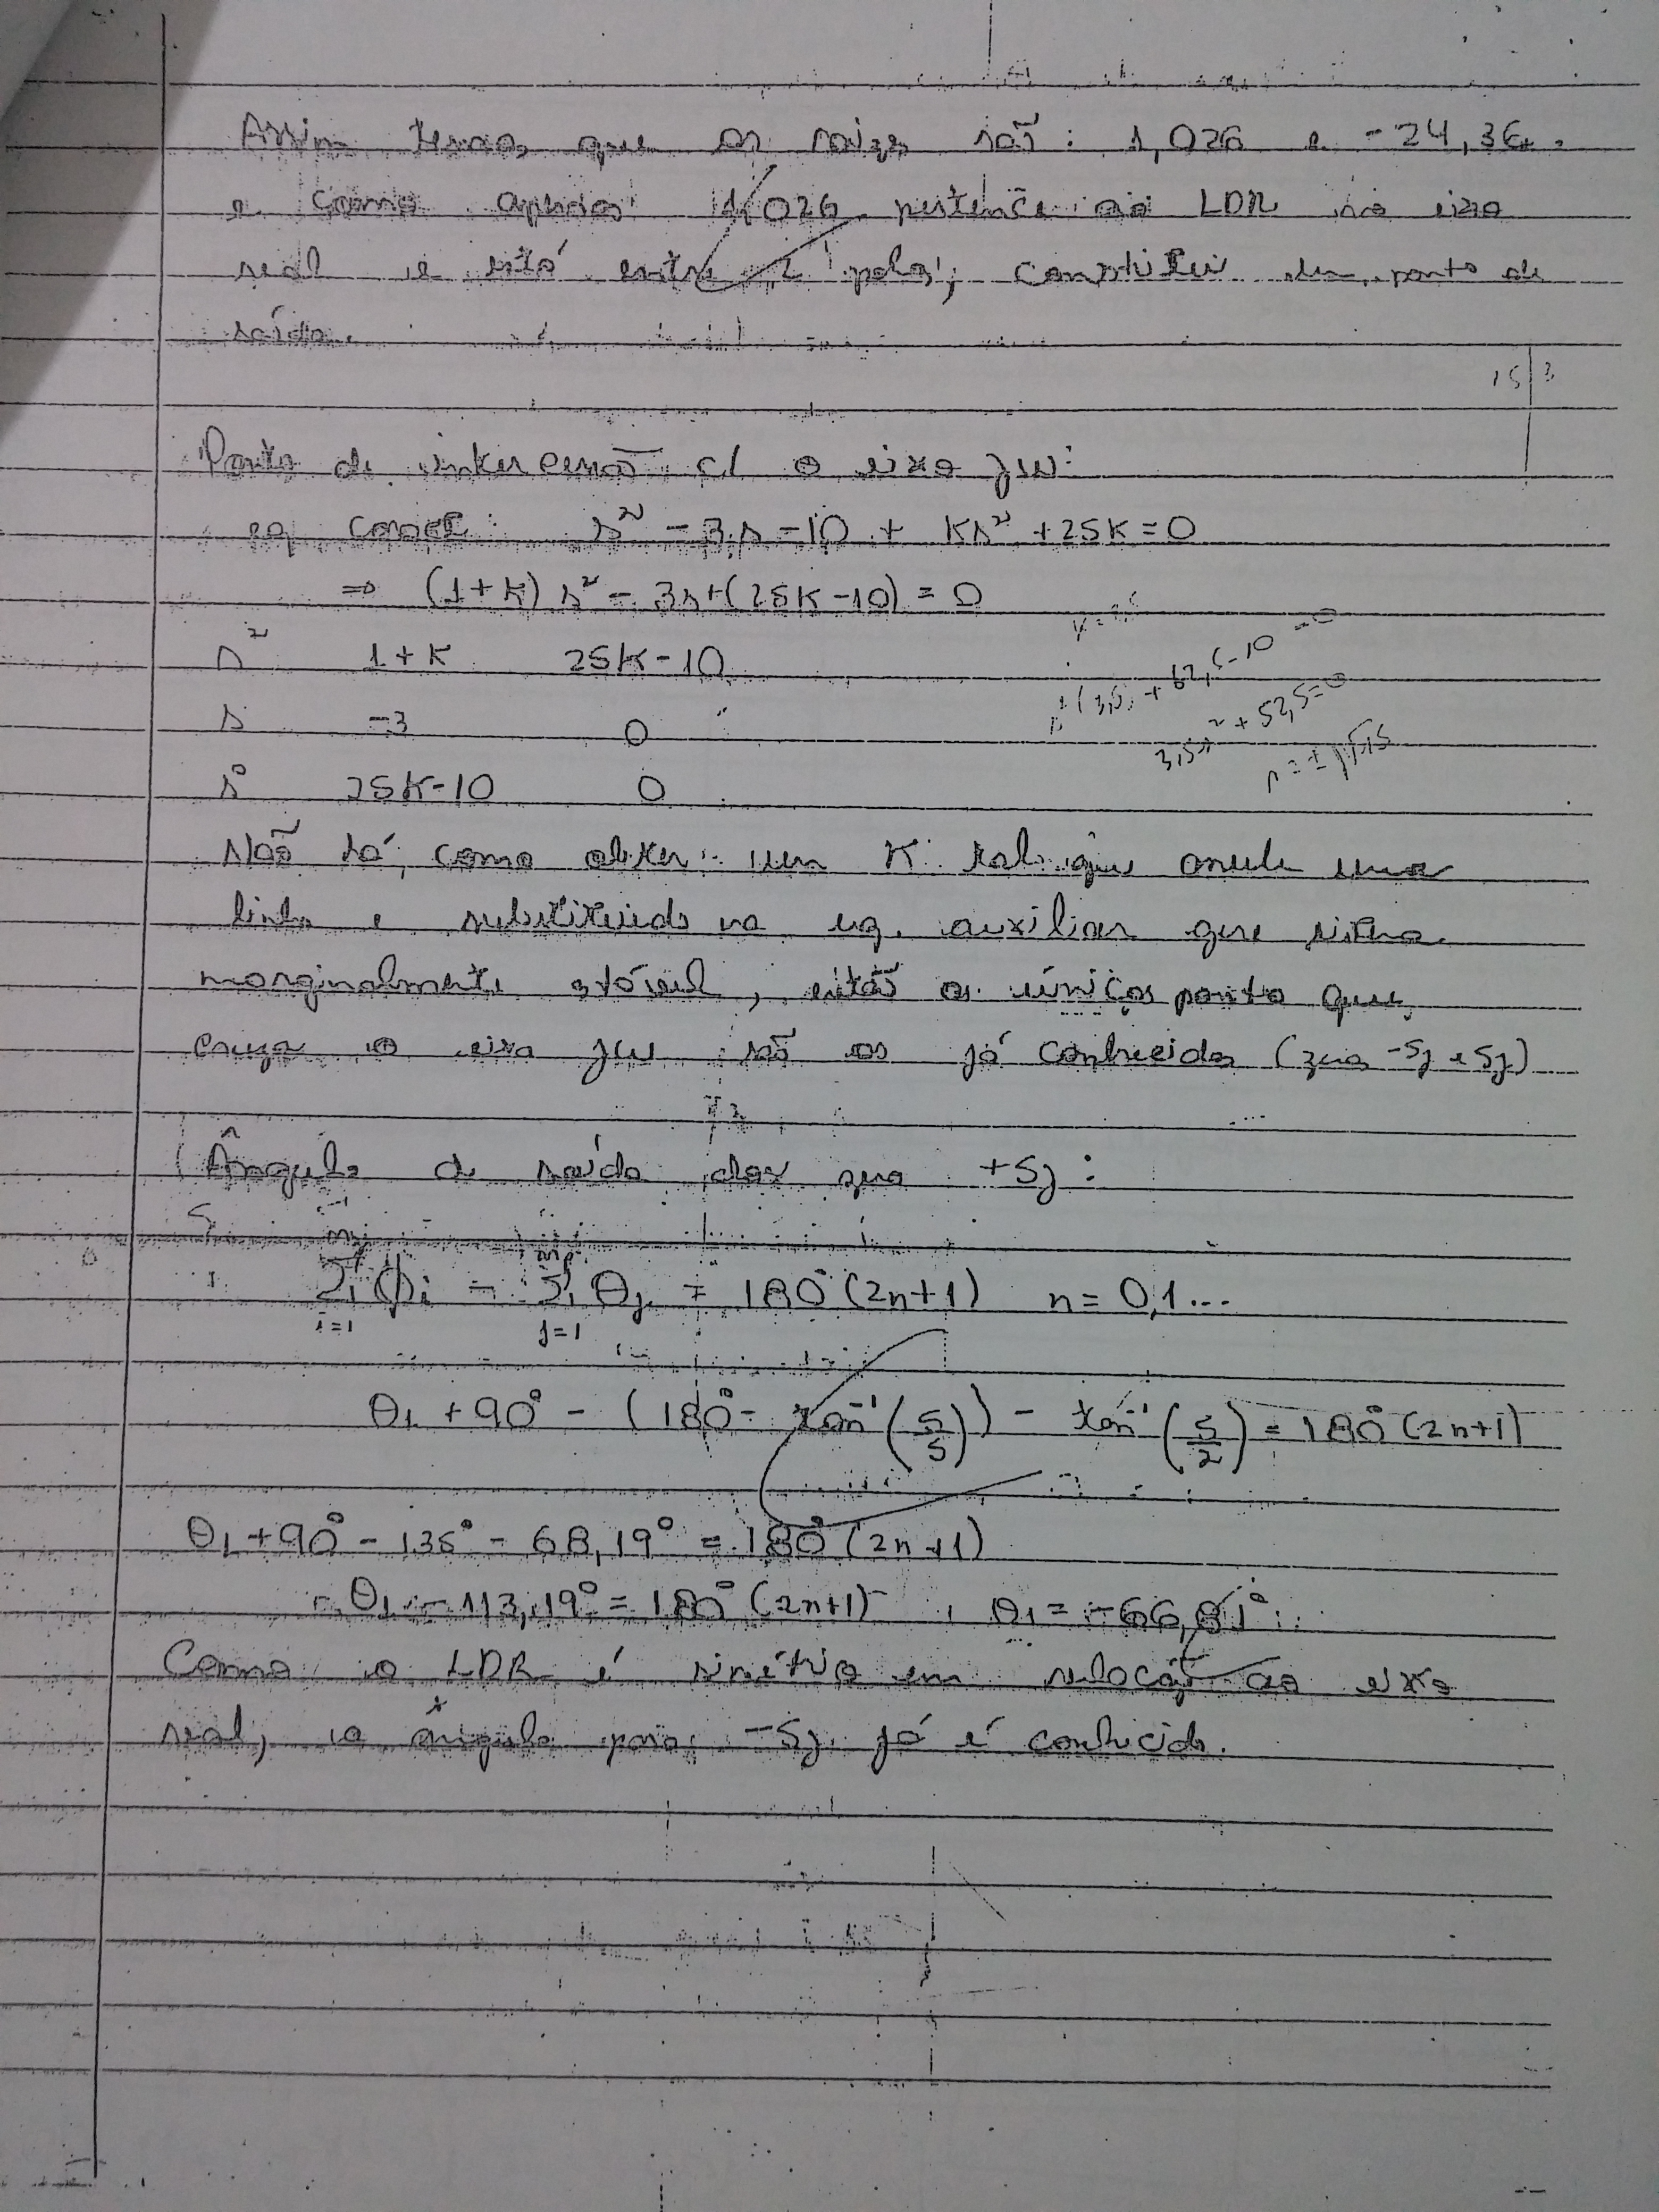 Assim temos que as raizes são: 1,026 e -24,36.
e como apenas 1,026 pertence ao LDR no eixo
real e está entre 2 polos, constitui um ponto de
saída.
15 3
Ponto de intercessão c/ o eixo jw:
eq caract: s² - 3s - 10 + Ks² + 25K = 0
⇒ (1+K)s² - 3s + (25K - 10) = 0
s² 1+K 25K-10
s -3 0
s⁰ 25K-10 0
3,5s² + 52,5 = 0
Não há como obter um K tal que anule uma
linha e substituindo na eq. auxiliar gere sistema
marginalmente estável, então os únicos ponto que
cruza o eixo jw são os já conhecidos (zeros -5j e 5j)
Ângulo de saída dos zeros +5j:
Σ ϕi - Σ θj = 180°(2n+1) n = 0,1...
i=1 j=1
θ1 + 90° - (180° - tan⁻¹(5/5)) - tan⁻¹(5/2) = 180°(2n+1)
θ1 + 90° - 135° - 68,19° = 180°(2n+1)
θ1 - 113,19° = 180°(2n+1), θ1 = -66,81°
Como o LDR é simétrico em relação ao eixo
real, o ângulo para -5j já é conhecido.